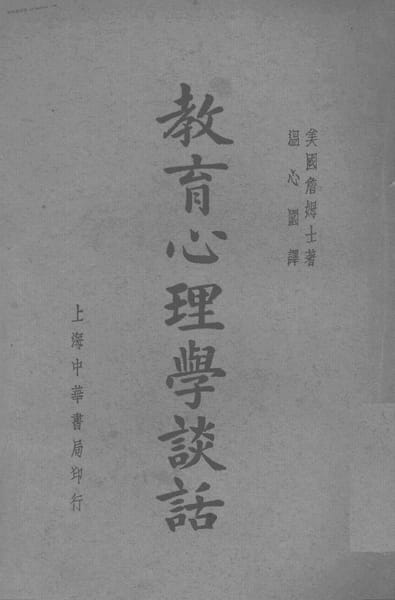 美國詹姆士著
溫心園譯
教育心理學談話
上海中華書局印行